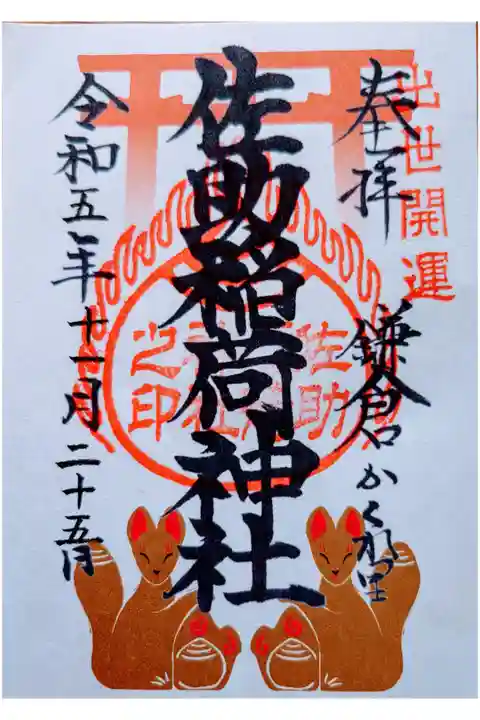 出世開運
奉拝
鎌倉かくれ里
佐助稲荷神社
佐助
社
之印
令和五年十一月二十五日